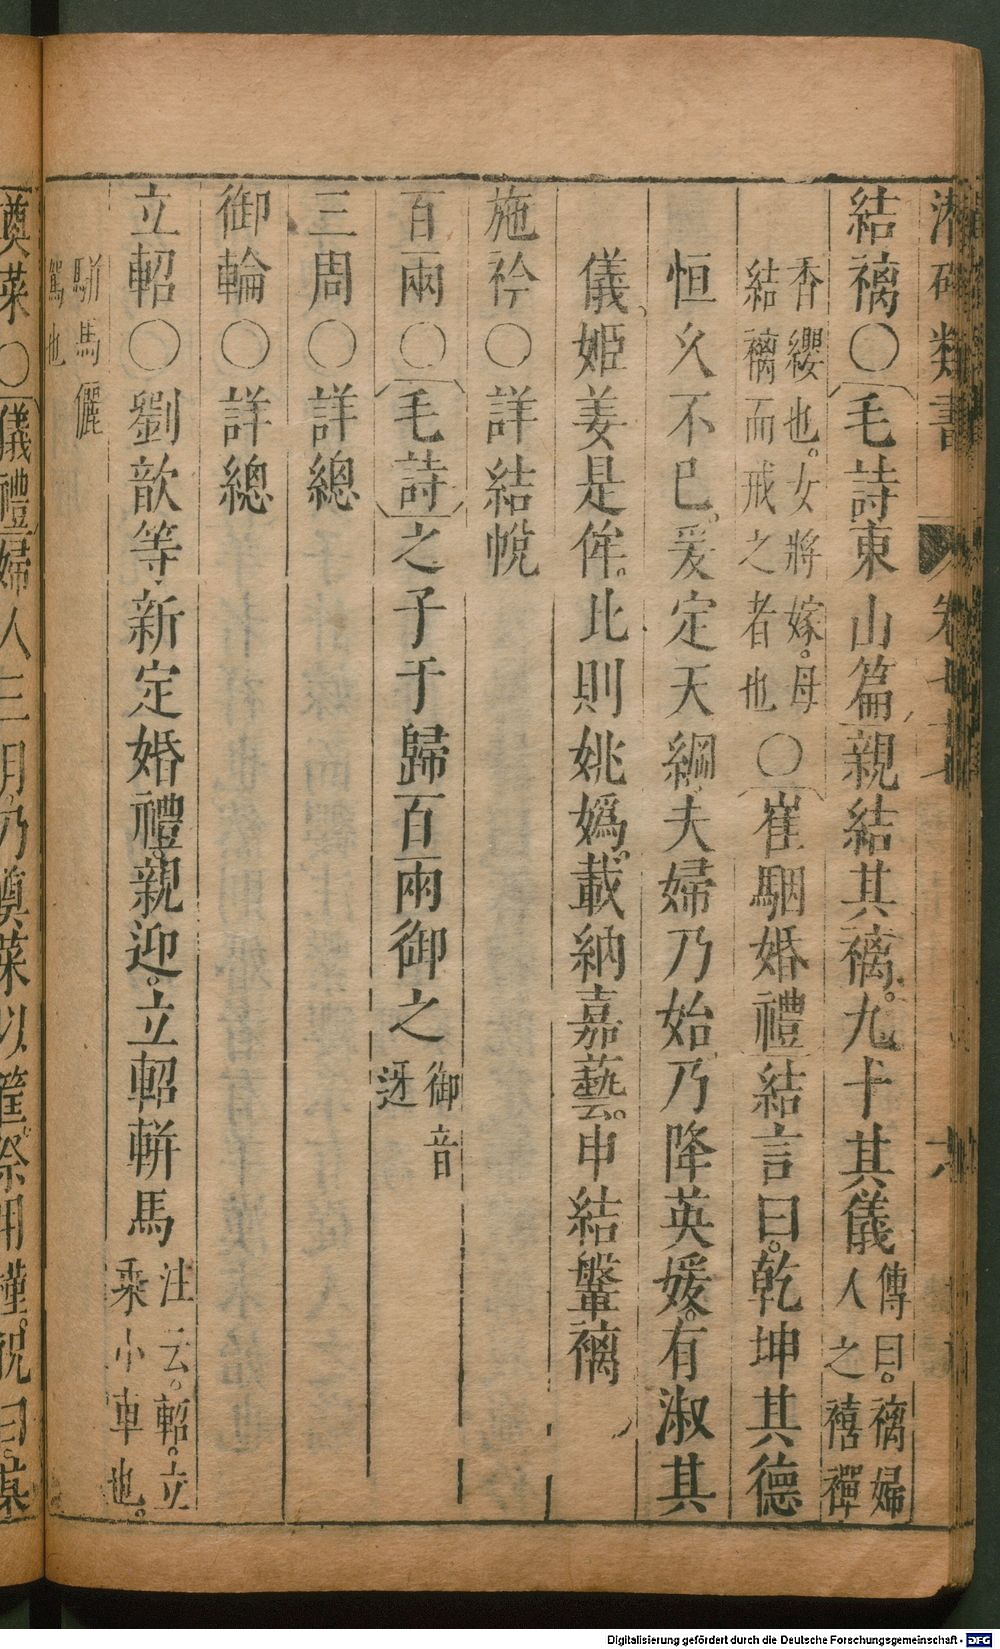 類書
結褵○毛詩東山篇親結其褵九十其儀傳曰褵婦人之禧禪
香纓也女將嫁母結褵而戒之者也○崔駰婚禮結言曰乾坤其德
恒久不已爰定天綱夫婦乃始乃降英媛有淑其
儀姬姜是侔比則姚媯載納嘉藝申結鞶褵
施衿○詳結帨
百兩○毛詩之子于歸百兩御之御音迓
三周○詳總
御輪○詳總
立軺○劉歆等新定婚禮親迎立軺軿馬注云軺立乘小車也
駢馬儷駕也
奠菜○儀禮婦人三月乃奠菜以筐祭用堇祝曰某
Digitalisierung gefördert durch die Deutsche Forschungsgemeinschaft - DFG